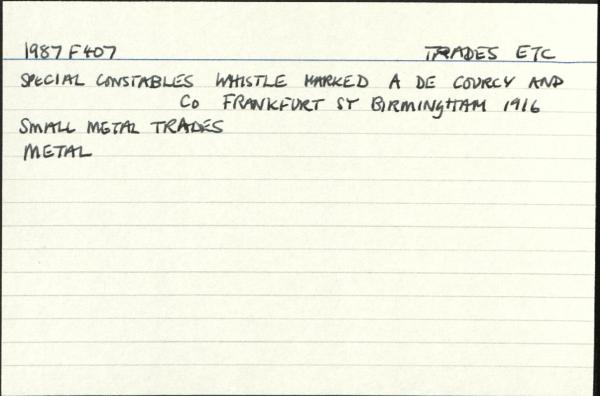 1987 F407 TRADES ETC
SPECIAL CONSTABLES WHISTLE MARKED A DE COURCY AND
Co FRANKFURT ST BIRMINGHAM 1916
SMALL METAL TRADES
METAL